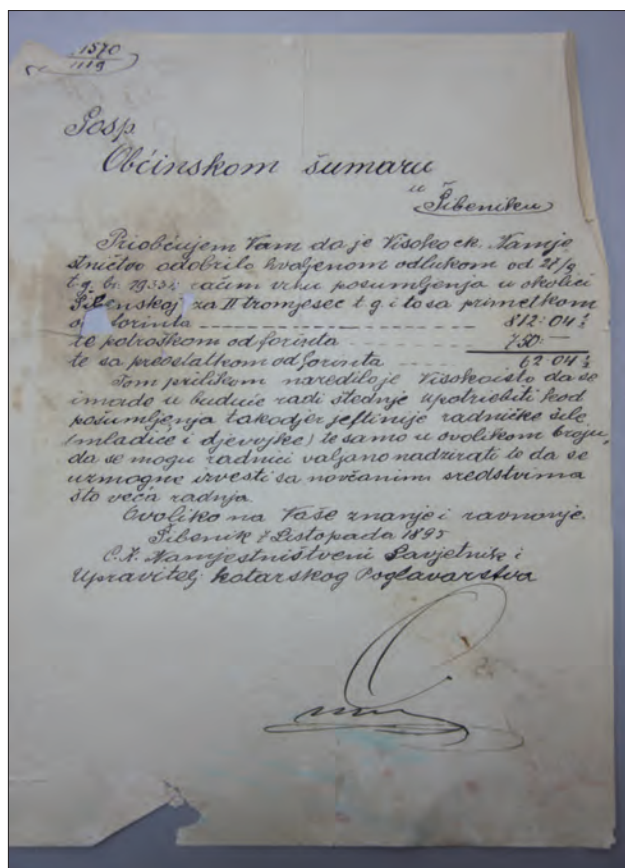 1570
Gosp.
Občinskom šumaru
u
Šibeniku
Priobćujem Vam da je Visoko ck. Namje
sničtvo odobrilo hvaljenom odlukom od 28/9
t.g. br. račun vrhu posumljenja u okolici
Šibenskoj za II tromjesec t g i to sa primetkom
forinta 812:04½
te potroškom od forinta 750:—
te sa preostatkom od forinta 62 04½
Tom prilikom naredilo je Visokoisto da se
imade u buduće radi štednje upotriebiti kod
pošumljenja takodjer jeftinije radničke sile
(mladiće i djevojke) te samo u ovolikom broju,
da se mogu radnici valjano nadzirati te da se
uzmogne izvesti sa novčanim sredstvima
što veća radnja.
Ovoliko na Vaše znanje i ravnanje.
Šibenik 7 Listopada 1895
C.K. Namjestništveni Savjetnik i
Upravitelj kotarskog Poglavarstva